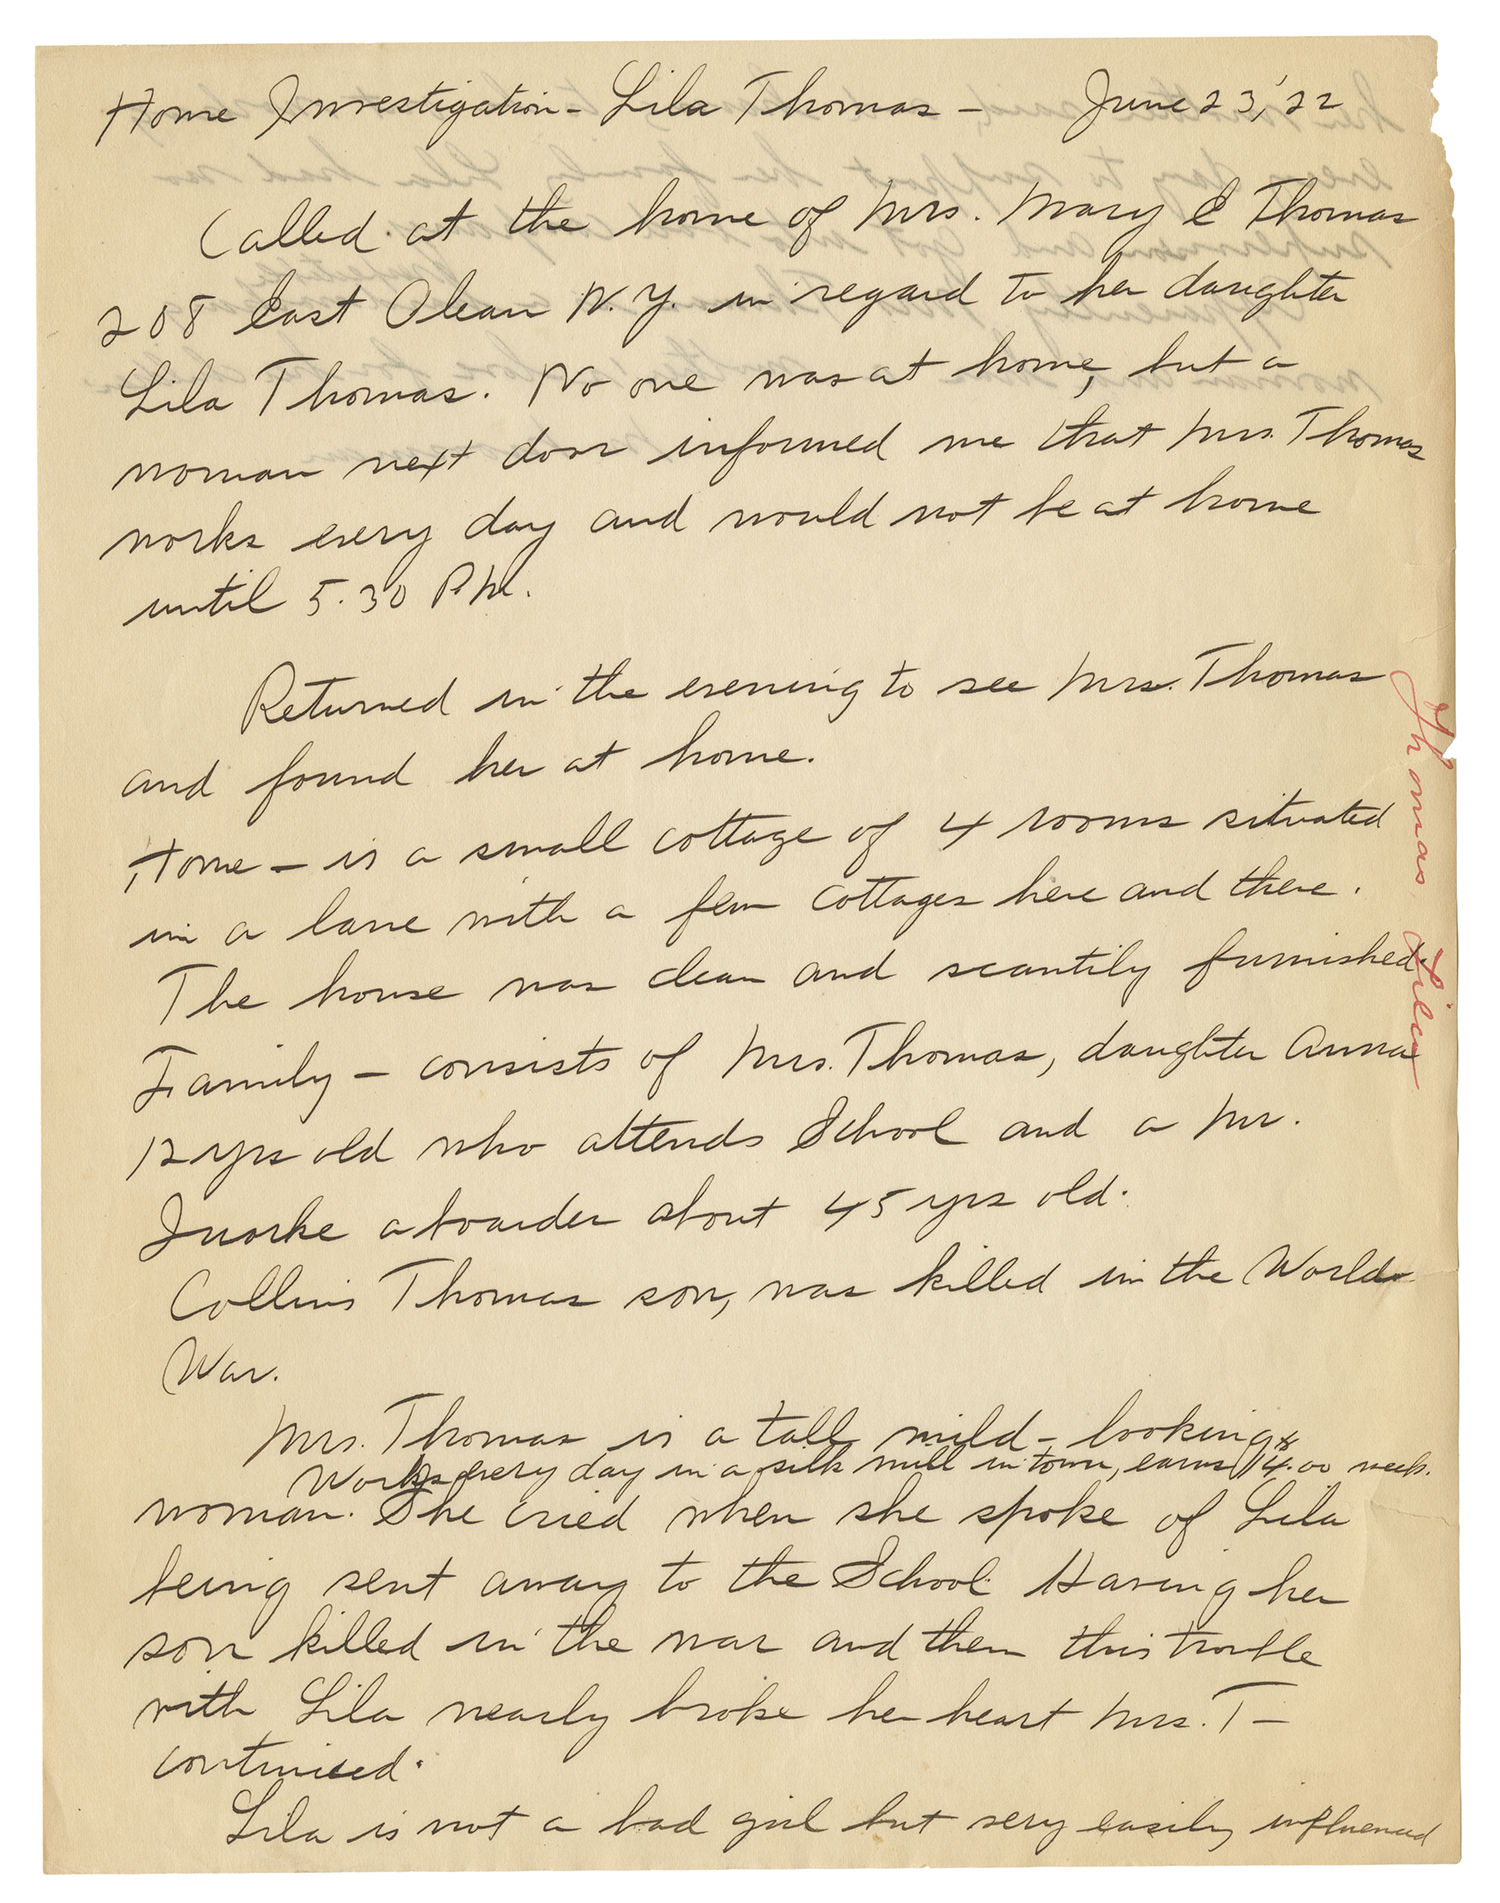 Home Investigation - Lila Thomas - June 23,'22
Called at the home of Mrs. Mary E Thomas
208 East Olean N.Y. in regard to her daughter
Lila Thomas. No one was at home, but a
woman next door informed me that Mrs. Thomas
works every day and would not be at home
until 5.30 P.M.
Returned in the evening to see Mrs. Thomas
and found her at home.
Home - is a small cottage of 4 rooms situated
in a lane with a few cottages here and there.
The house was clean and scantily furnished.
Family - consists of Mrs. Thomas, daughter Anna
12 yrs old who attends School and a Mr.
a boarder about 45 yrs old.
Collins Thomas son, was killed in the World
War.
Mrs. Thomas is a tall mild - looking
Works every day in a silk mill in town, earns $14.00 week.
woman. She cried when she spoke of Lila
being sent away to the School. Having her
son killed in the war and then this trouble
with Lila nearly broke her heart Mrs. T -
continued.
Lila is not a bad girl but very easily influenced
Thomas, Lila